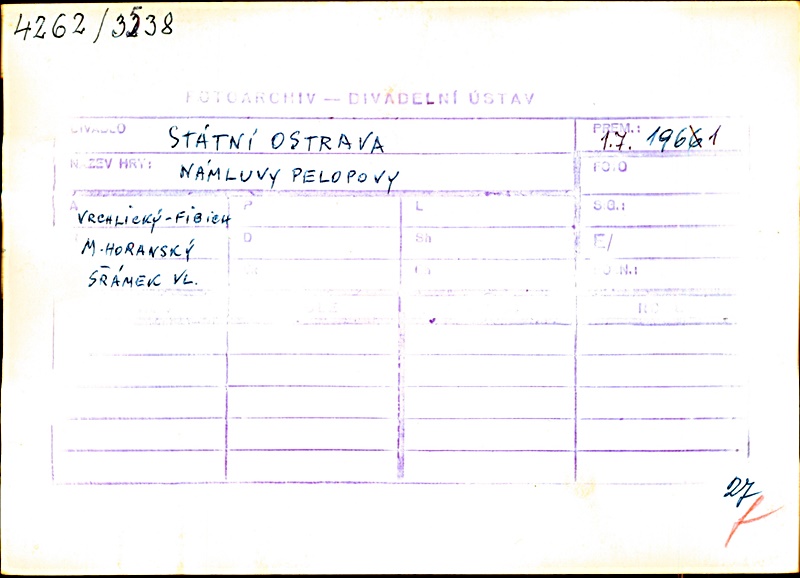 4262/3538
FOTOARCHIV — DIVADELNÍ ÚSTAV
DIVADLO STÁTNÍ OSTRAVA PREM.: 1.7. 1961
NÁZEV HRY: NÁMLUVY PELOPOVY FOTO
A VRCHLICKÝ-FIBICH P L S.G.:
M. HORANSKÝ D Sh E/
SŘÁMEK VL.
27